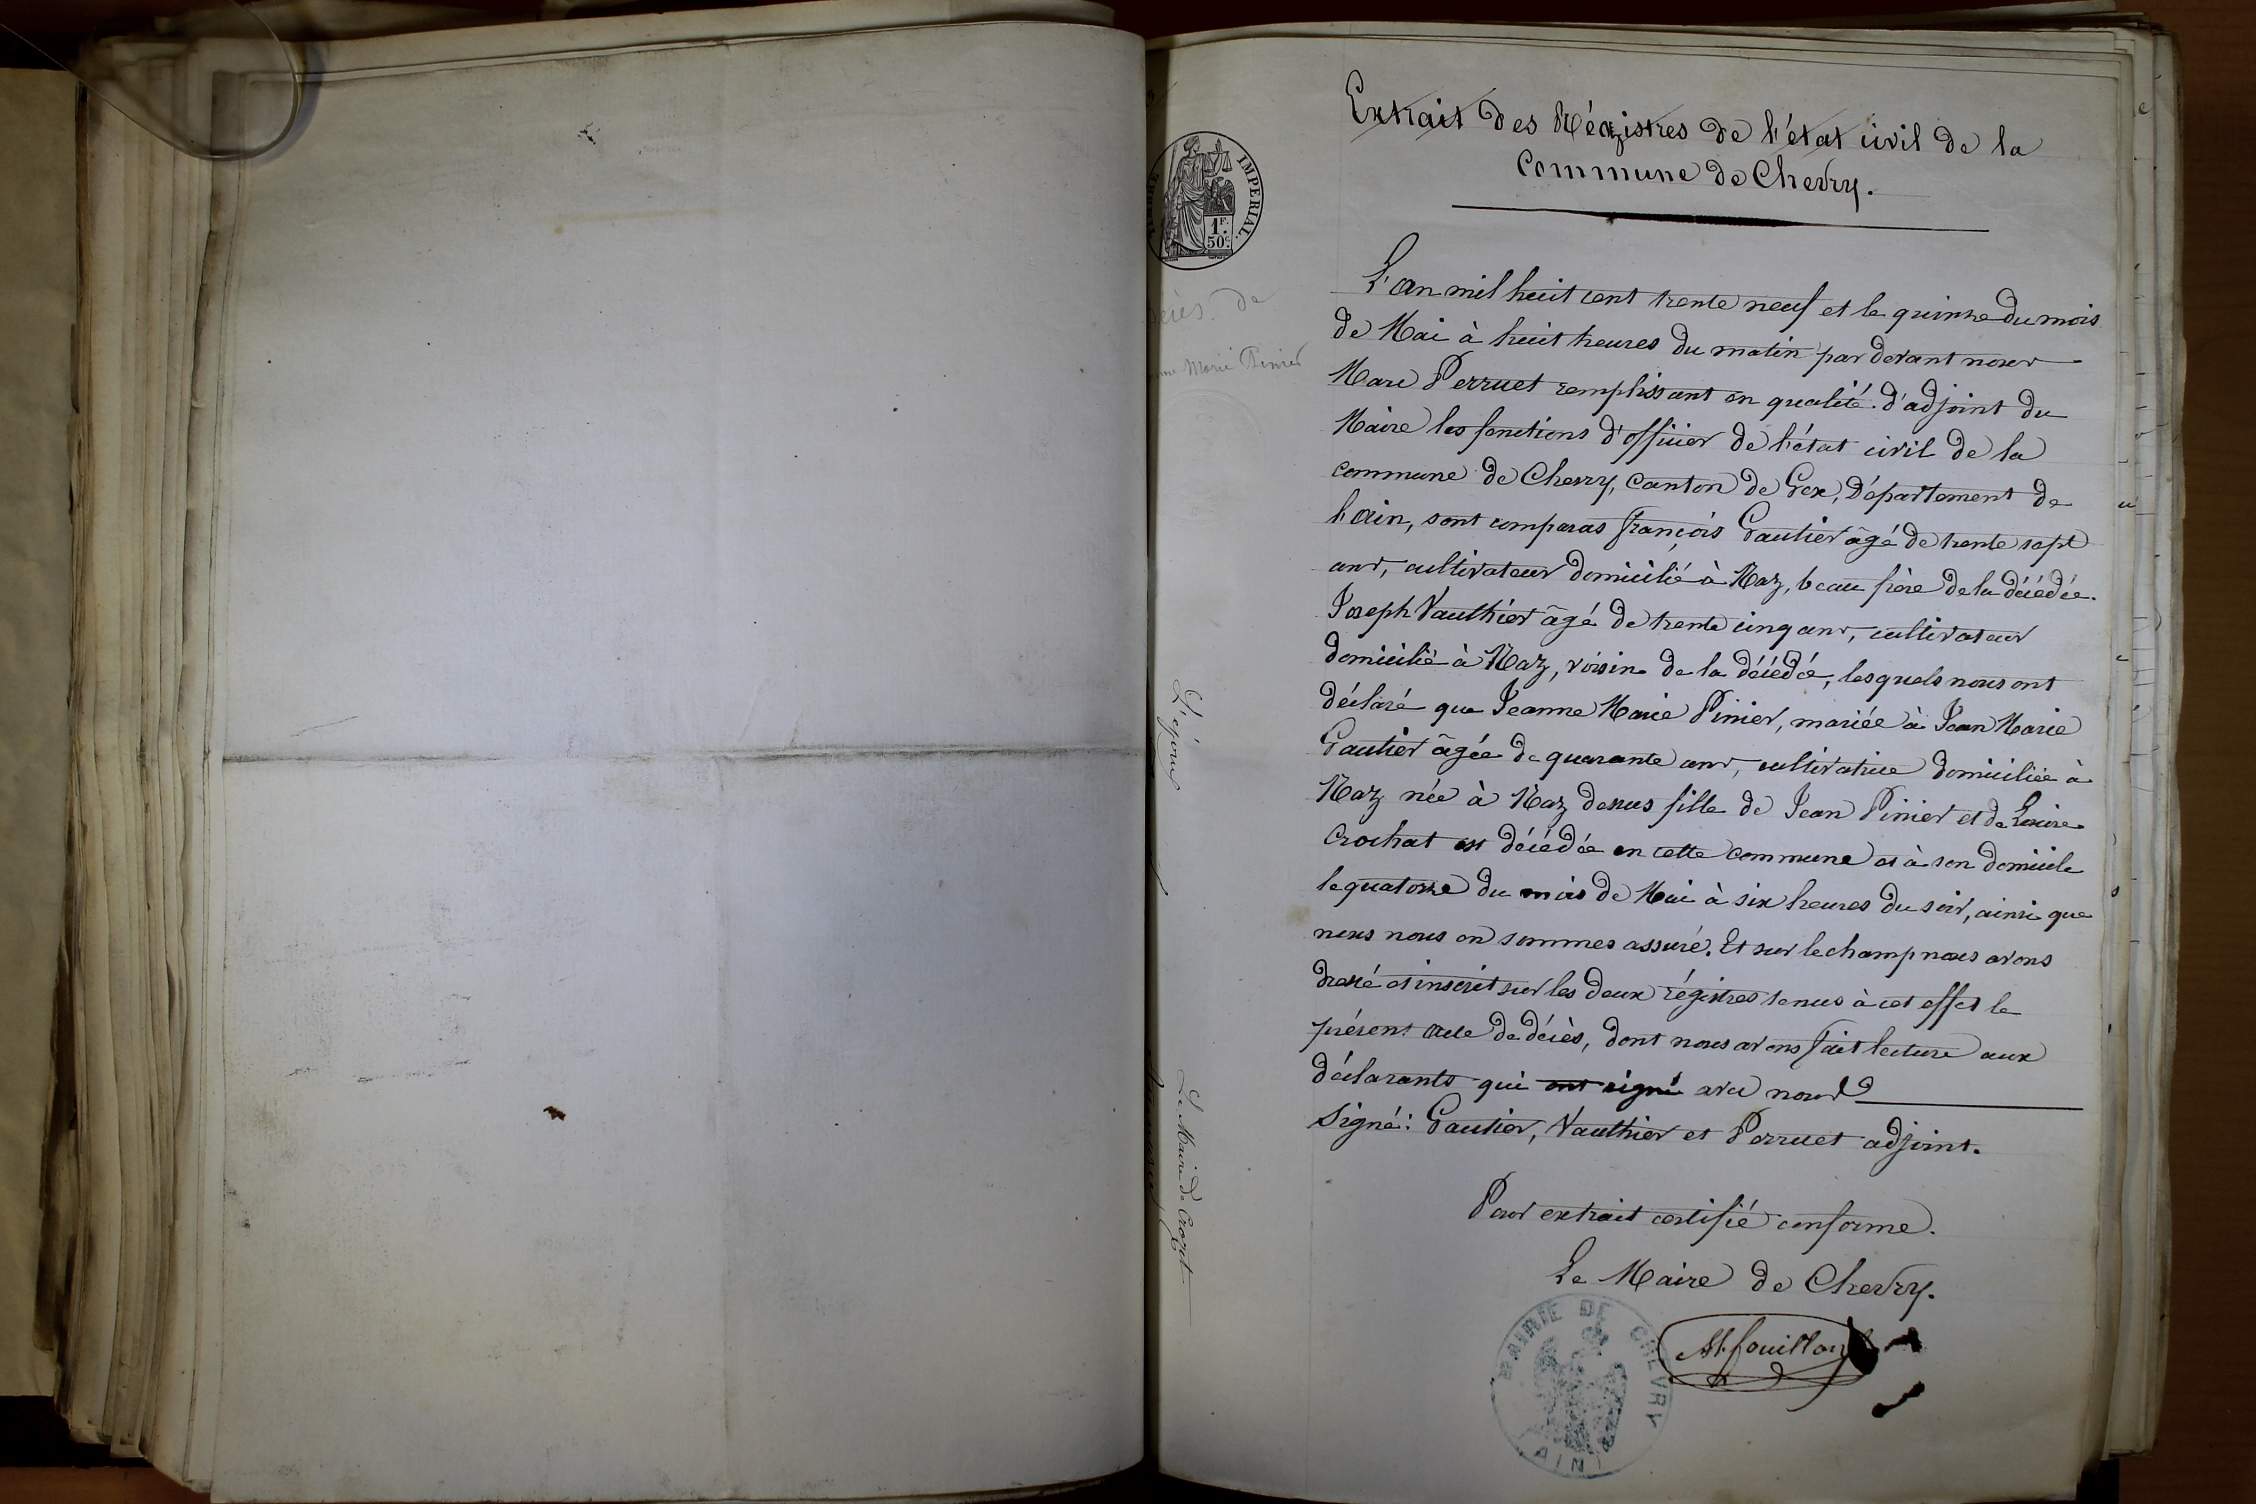 Extrait des Régistres de l'état civil de la
Commune de Chevry.
IMPERIAL.
1F.
50c.
décès de
Marie Pinier
L'an mil huit cent trente neuf et le quinze du mois
de Mai à huit heures du matin par devant nous
Marc Perruet remplissant en qualité d'adjoint du
Maire les fonctions d'officier de l'état civil de la
commune de Chevry, Canton de Gex, Département de
l'Ain, sont comparas François Gautier âgé de trente sept
ans, cultivateur domicilié à Naz, beau frère de la décédée.
Joseph Vauthier âgé de trente cinq ans, cultivateur
domicilié à Naz, voisin de la décédée, lesquels nous ont
déclaré que Jeanne Marie Pinier, mariée à Jean Marie
Gautier âgée de quarante ans, cultivatrice domiciliée à
Naz née à Naz dessus fille de Jean Pinier et de Louise
Crochat est décédée en cette commune et à son domicile
le quatorze du mois de Mai à six heures du soir, ainsi que
nous nous en sommes assuré. Et sur le champ nous avons
dressé et inscrit sur les deux régistres tenus à cet effet le
présent acte de décès, dont nous avons fait lecture aux
déclarants qui ont signé avec nous
Signé: Gautier, Vauthier et Perruet adjoint.
Pour extrait certifié conforme.
Le Maire de Chevry.
MAIRIE DE CHEVRY
(AIN)
Fouilloux
L'épouse
Le Maire de Crozet